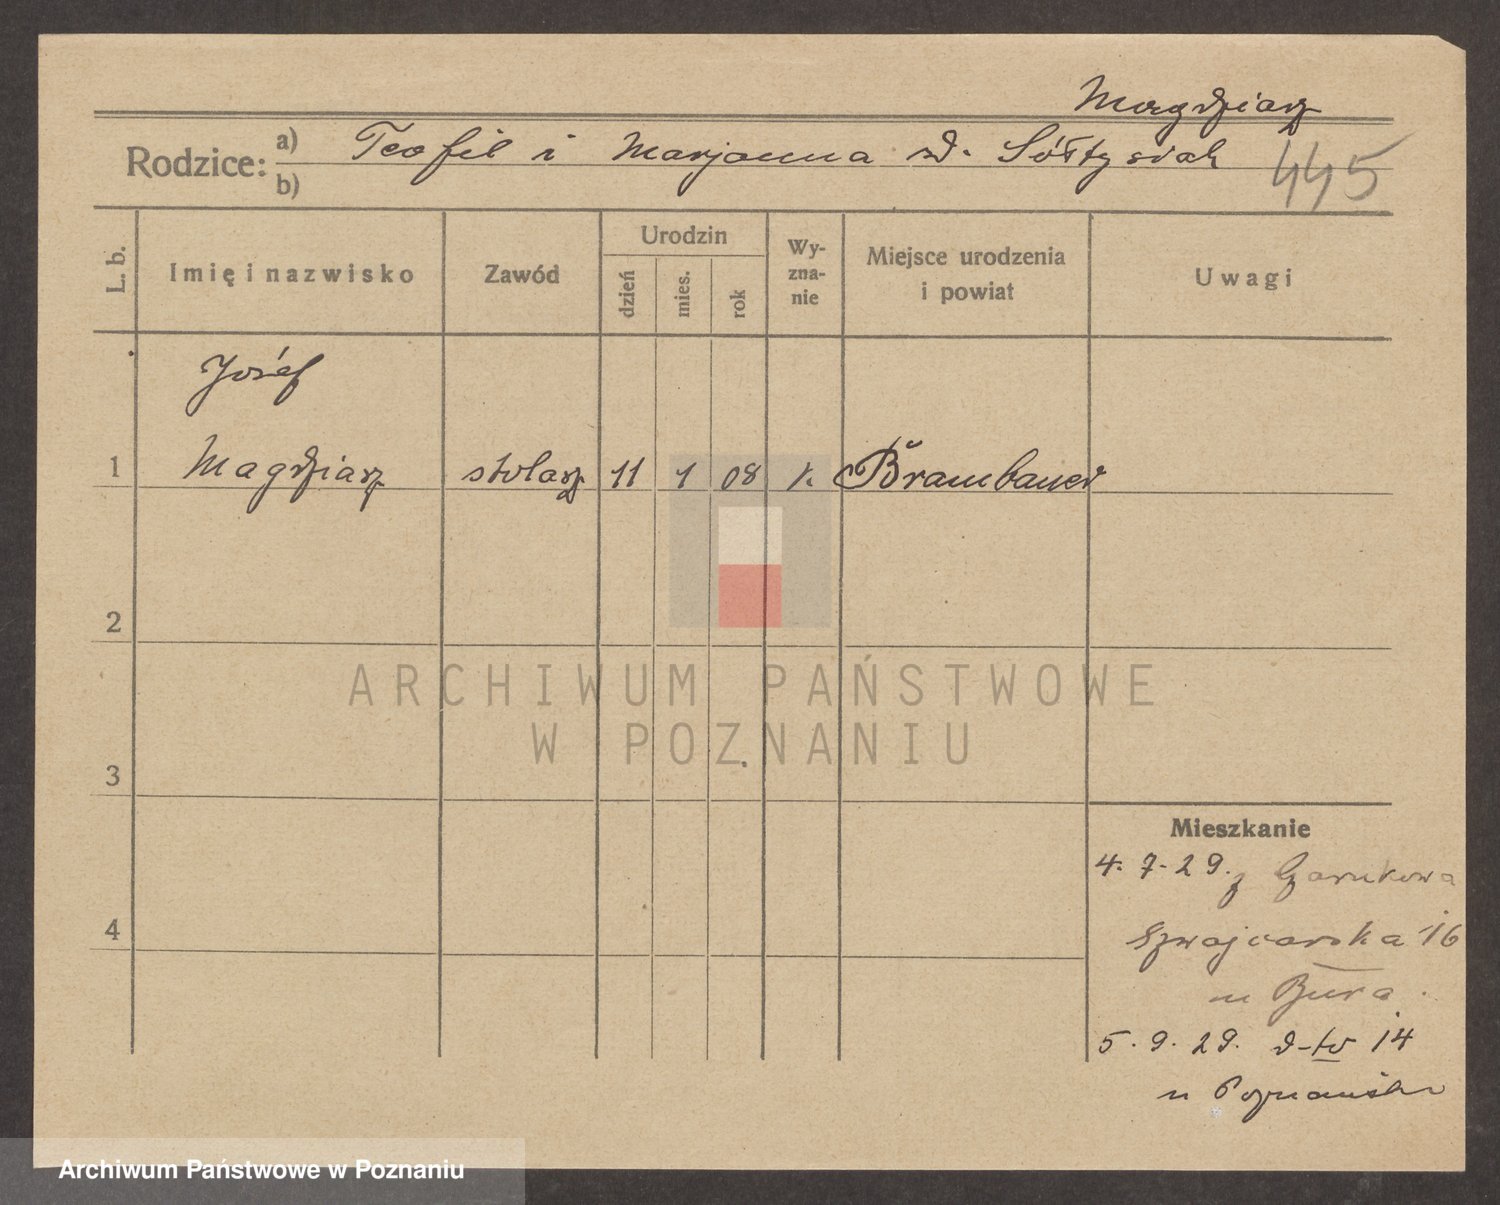 Magdziarz
Rodzice: a) Teofil i Marjanna d. Sółtysiak
b)
445
L. b.
Imię i nazwisko
Zawód
Urodzin
dzień
mies.
rok
Wy-
zna-
nie
Miejsce urodzenia
i powiat
Uwagi
Józef
1 Magdziarz stolarz 11 1 08 k. Brambauer
2
3
4
ARCHIWUM PAŃSTWOWE
W POZNANIU
Mieszkanie
4. 7. 29. z Czarnkowa
Szwajcarska 16
u Bura.
5. 9. 29. d-to 14
u Poznański
Archiwum Państwowe w Poznaniu